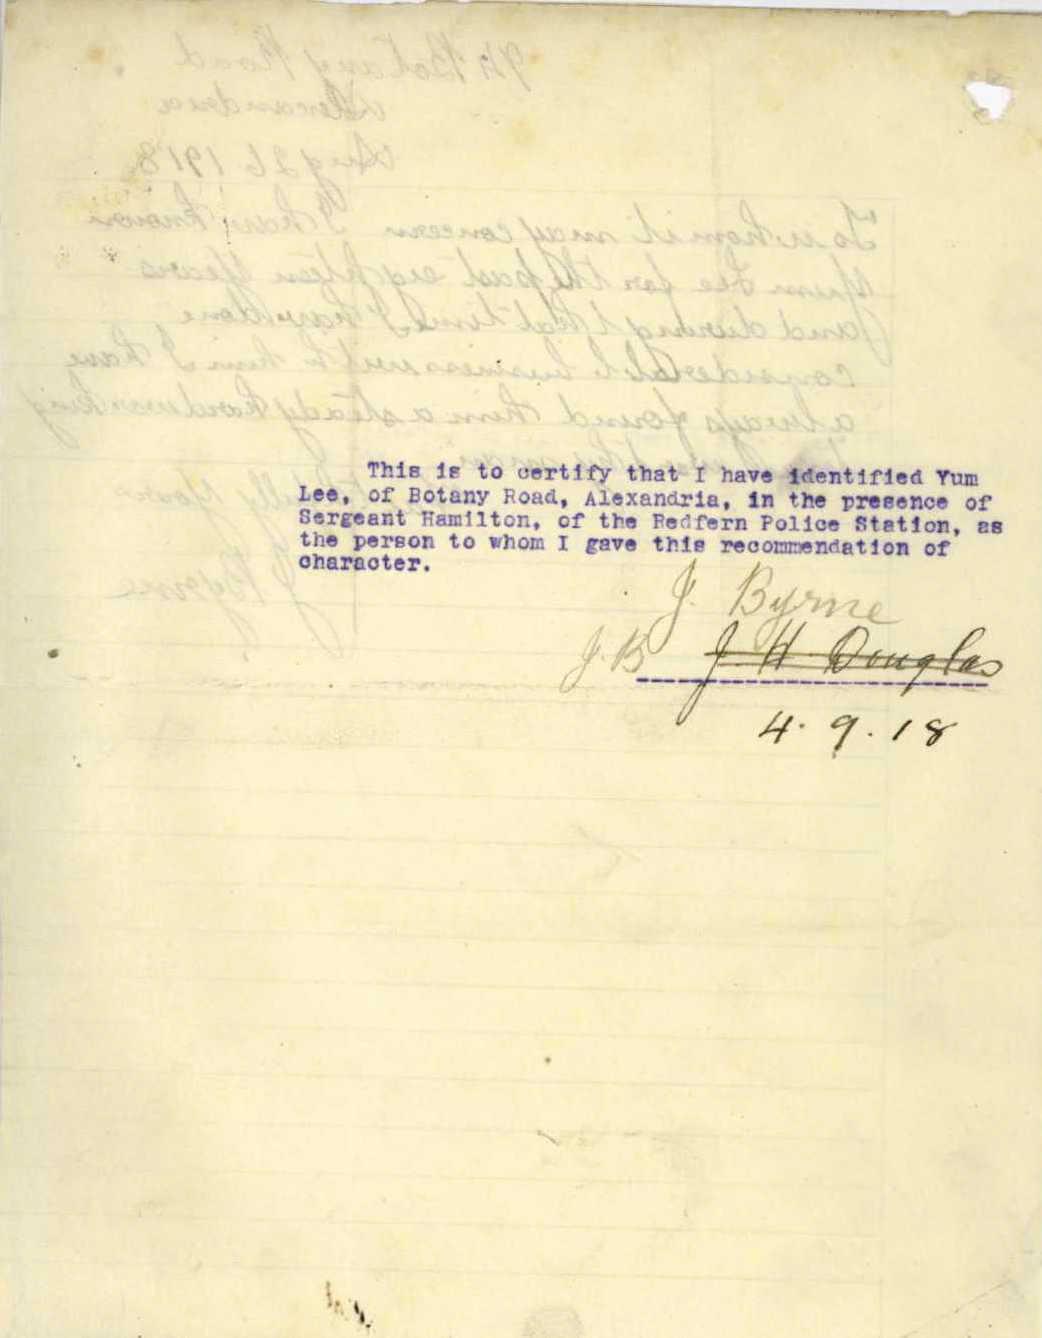 This is to certify that I have identified Yum
Lee, of Botany Road, Alexandria, in the presence of
Sergeant Hamilton, of the Redfern Police Station, as
the person to whom I gave this recommendation of
character.
J. Byrne
J.B J. H. Douglas
4.9.18